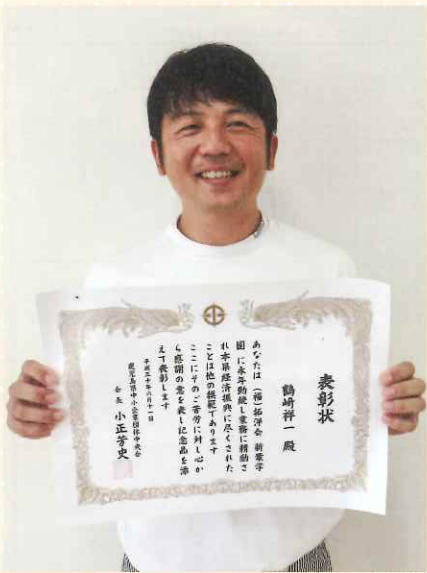 表彰状
鶴﨑祥一 殿
あなたは(福)拓洋会 新樂学
園に永年勤続し業務に精励さ
れ本県経済振興に尽くされた
ことは他の模範であります
ここにそのご苦労に対し心か
ら感謝の意を表し記念品を添
えて表彰します
平成三十年六月十一日
鹿児島県中小企業団体中央会
会長 小正芳史